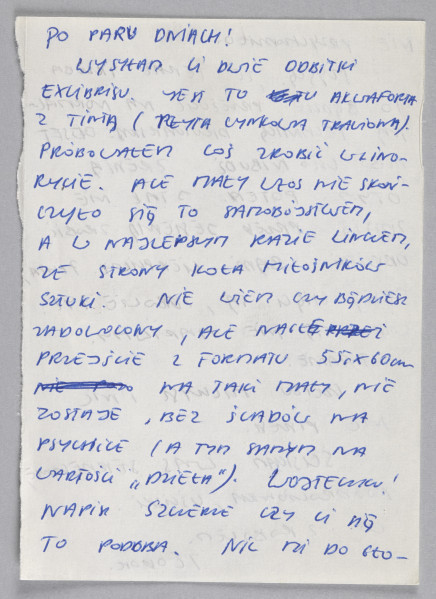 PO PARU DNIACH!
WYSYŁAM CI DWIE ODBITKI
EXLIBRISU. JEST TO AKWAFORTA
Z TINTĄ (PŁYTA CYNKOWA TRAWIONA).
PRÓBOWAŁEM COŚ ZROBIĆ W LINO-
RYCIE. ALE MAŁY WŁOS NIE SKOŃ-
CZYŁO SIĘ TO SAMOBÓJSTWEM,
A W NAJLEPSZYM RAZIE LINCZEM,
ZE STRONY KOŁA MIŁOŚNIKÓW
SZTUKI. NIE WIEM CZY BĘDZIESZ
ZADOWOLONY, ALE NAGŁE
PRZEJŚCIE Z FORMATU 55x60cm
NA TAKI MAŁY, NIE
ZOSTAJE, BEZ ŚLADÓW NA
PSYCHICE (A TYM SAMYM NA
WARTOŚCI „DZIEŁA"). WOJTECZKU!
NAPISZ SZCZERZE CZY CI SIĘ
TO PODOBA. NIC MI DO GŁO-